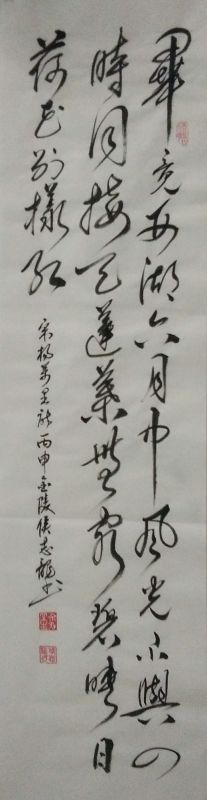 畢竟西湖六月中風光不與四
時同接天蓮葉無窮碧映日
荷花別樣紅
宋楊萬里詩丙申金陵侯志龍书